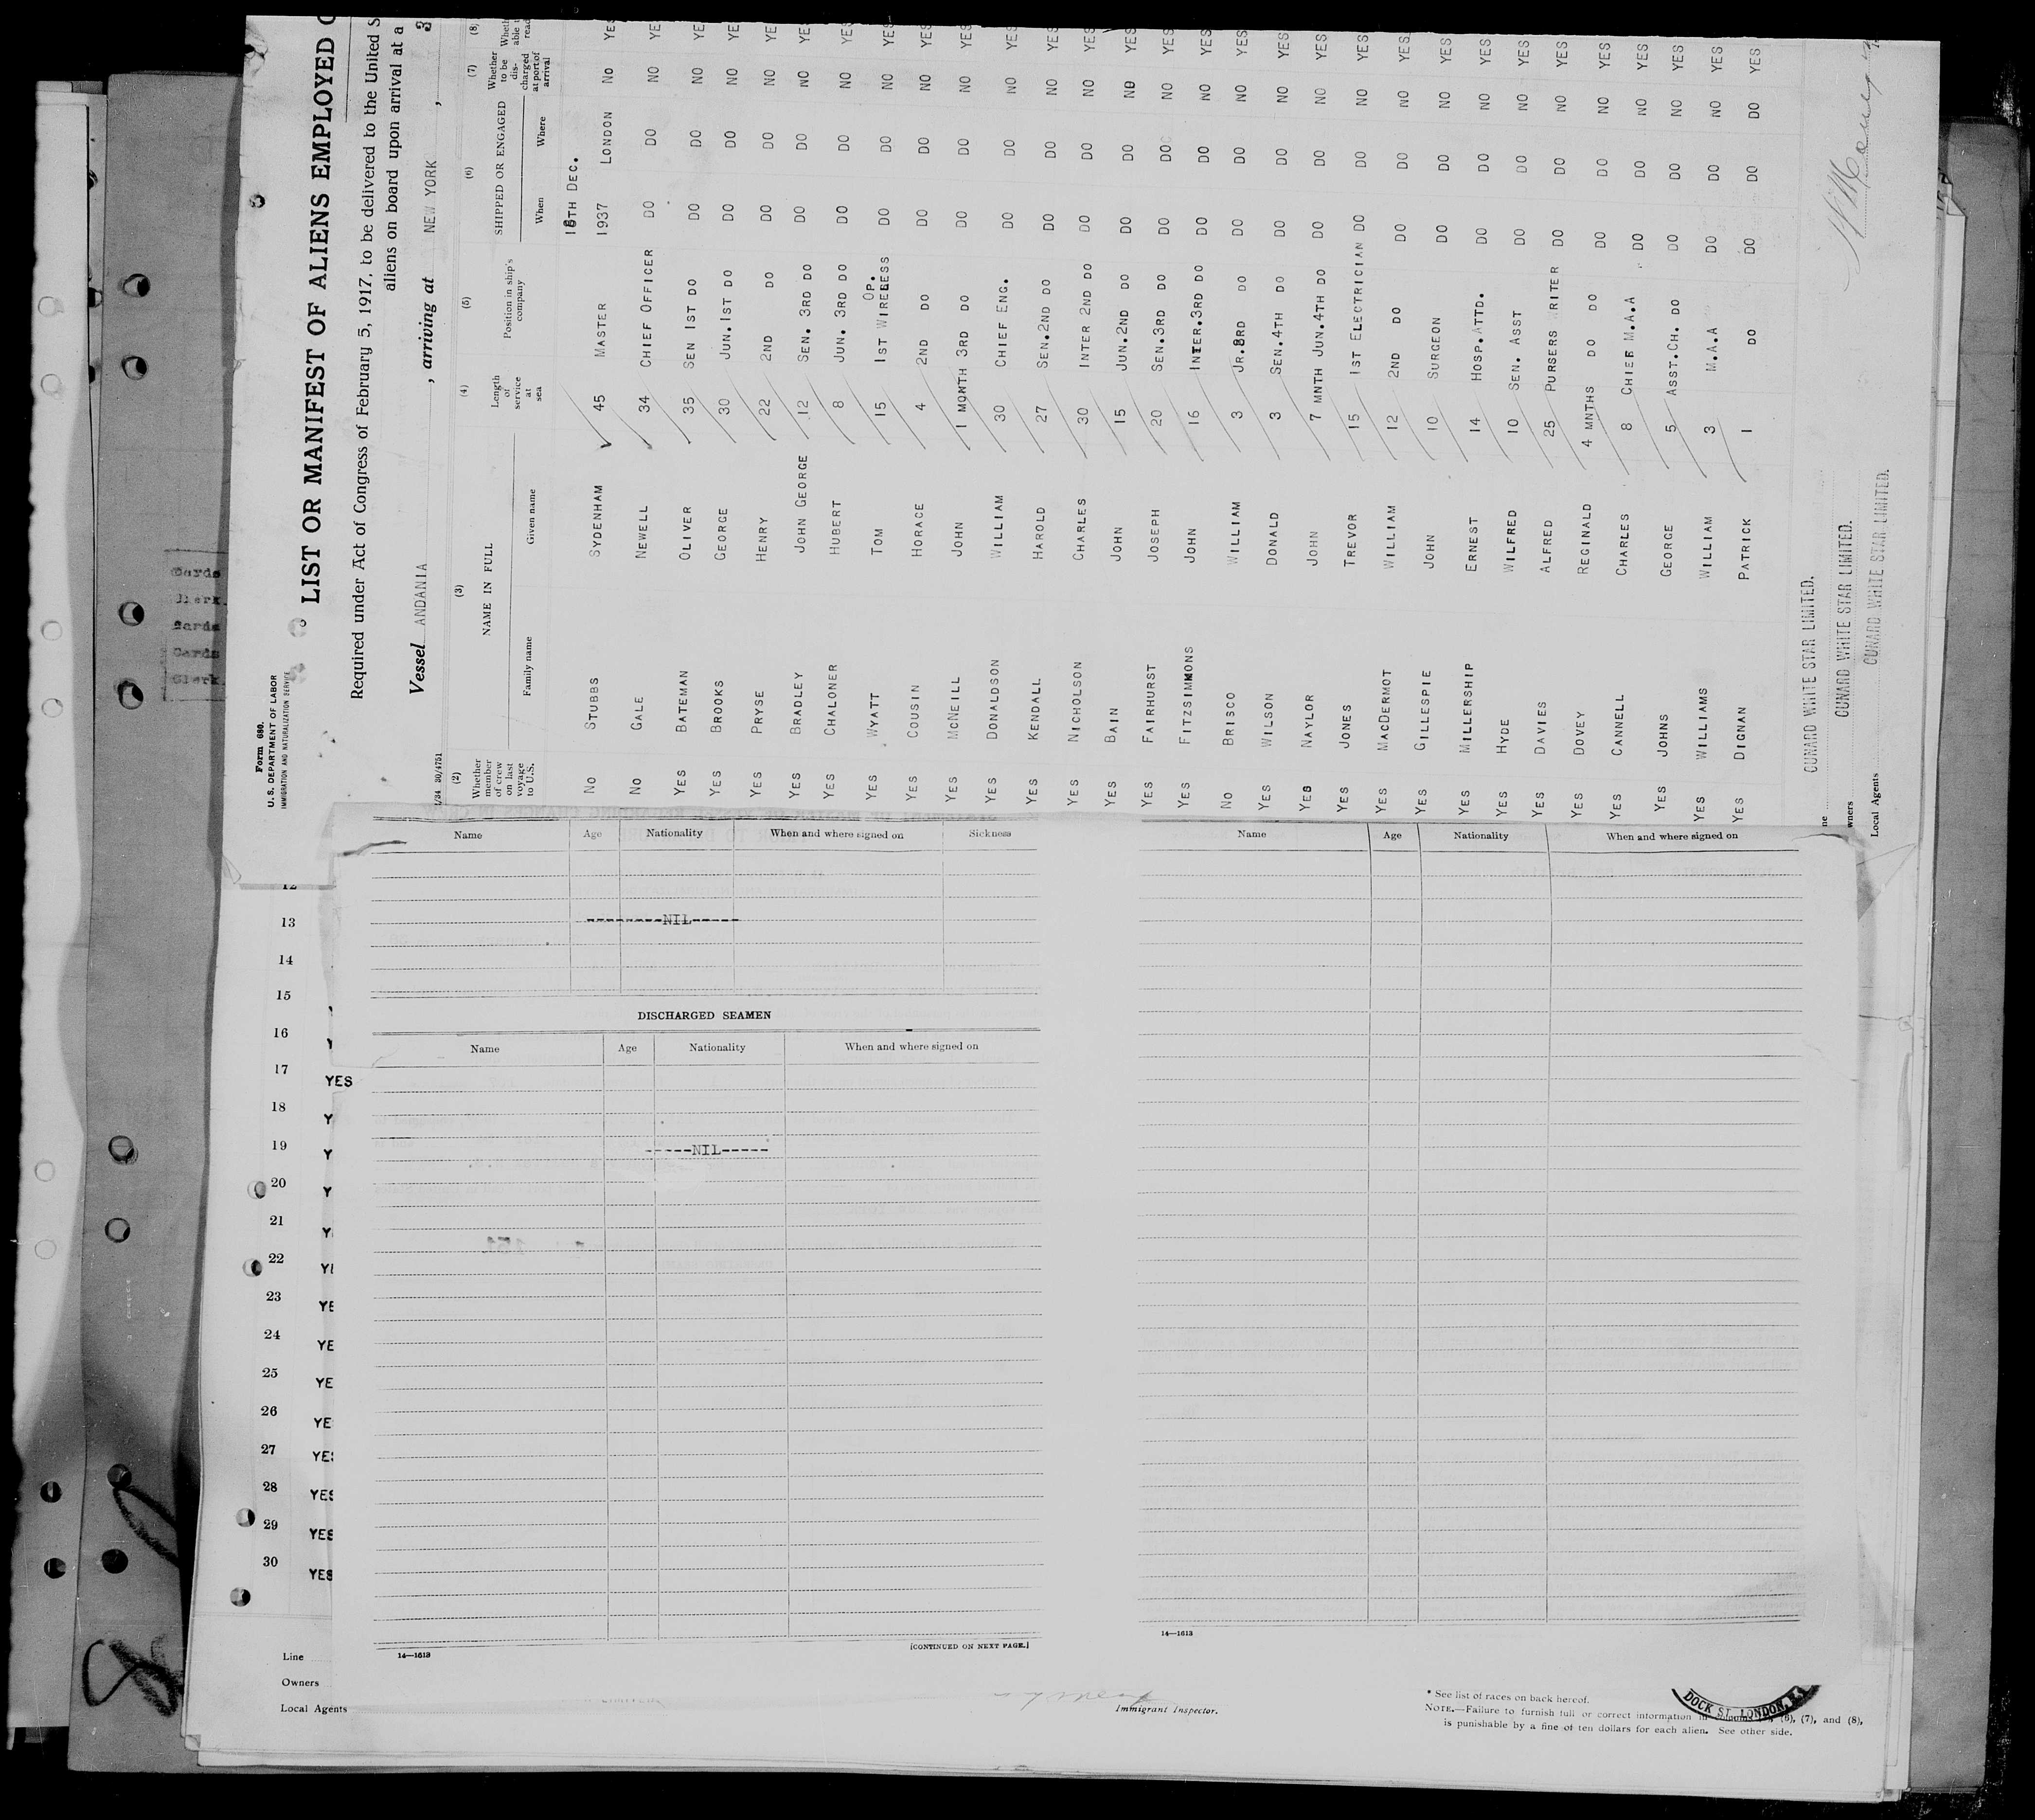 Form 680.
U. S. DEPARTMENT OF LABOR
IMMIGRATION AND NATURALIZATION SERVICE
LIST OR MANIFEST OF ALIENS EMPLOYED
Required under Act of Congress of February 5, 1917, to be delivered to the United S
aliens on board upon arrival at a
Vessel ANDANIA , arriving at NEW YORK , 3
(2) (3) (4) (5) (6) (7) (8)
Whether member of crew on last voyage to U.S. NAME IN FULL Family name Given name Length of service at sea Position in ship's company SHIPPED OR ENGAGED When Where Whether to be discharged at port of arrival Wheth able t read
18TH DEC.
NO STUBBS SYDENHAM 45 MASTER 1937 LONDON NO YES
NO GALE NEWELL 34 CHIEF OFFICER DO DO NO YES
YES BATEMAN OLIVER 35 SEN 1ST DO DO DO NO YES
YES BROOKS GEORGE 30 JUN.1ST DO DO DO NO YES
YES PRYSE HENRY 22 2ND DO DO DO NO YES
YES BRADLEY JOHN GEORGE 12 SEN. 3RD DO DO DO NO YES
YES CHALONER HUBERT 8 JUN. 3RD DO DO DO NO YES
YES WYATT TOM 15 1ST WIRELESS OP. DO DO NO YES
YES COUSIN HORACE 4 2ND DO DO DO NO YES
YES MCNEILL JOHN 1 MONTH 3RD DO DO DO NO YES
YES DONALDSON WILLIAM 30 CHIEF ENG. DO DO NO YES
YES KENDALL HAROLD 27 SEN.2ND DO DO DO NO YES
YES NICHOLSON CHARLES 30 INTER 2ND DO DO DO NO YES
YES BAIN JOHN 15 JUN.2ND DO DO DO NO YES
YES FAIRHURST JOSEPH 20 SEN.3RD DO DO DO NO YES
YES FITZSIMMONS JOHN 16 INTER.3RD DO DO DO NO YES
NO BRISCO WILLIAM 3 JR.3RD DO DO DO NO YES
YES WILSON DONALD 3 SEN.4TH DO DO DO NO YES
YES NAYLOR JOHN 7 MNTH JUN.4TH DO DO DO NO YES
YES JONES TREVOR 15 1ST ELECTRICIAN DO DO NO YES
YES MACDERMOT WILLIAM 12 2ND DO DO DO NO YES
YES GILLESPIE JOHN 10 SURGEON DO DO NO YES
YES MILLERSHIP ERNEST 14 HOSP.ATTD. DO DO NO YES
YES HYDE WILFRED 10 SEN. ASST DO DO NO YES
YES DAVIES ALFRED 25 PURSERS RITER DO DO NO YES
YES DOVEY REGINALD 4 MNTHS DO DO DO DO NO YES
YES CANNELL CHARLES 8 CHIEF M.A.A DO DO NO YES
YES JOHNS GEORGE 5 ASST.CH. DO DO DO NO YES
YES WILLIAMS WILLIAM 3 M.A.A DO DO NO YES
YES DIGNAN PATRICK 1 DO DO DO DO YES
CUNARD WHITE STAR LIMITED.
wners CUNARD WHITE STAR LIMITED.
Local Agents CUNARD WHITE STAR LIMITED.
Cards
Clerk.
Cards
Cards
Clerk.
Name Age Nationality When and where signed on Sickness
--------NIL-----
DISCHARGED SEAMEN
Name Age Nationality When and where signed on
-----NIL-----
[CONTINUED ON NEXT PAGE.]
14—1613
Name Age Nationality When and where signed on
14—1613
12
13
14
15
16
17 YES
18 Y
19 Y
20 Y
21 Y
22 YE
23 YE
24 YE
25 YE
26 YE
27 YES
28 YES
29 YES
30 YES
Line
Owners
Local Agents
Immigrant Inspector.
* See list of races on back hereof.
NOTE.—Failure to furnish full or correct information in columns (6), (7), and (8),
is punishable by a fine of ten dollars for each alien. See other side.
DOCK ST. LONDON, E.